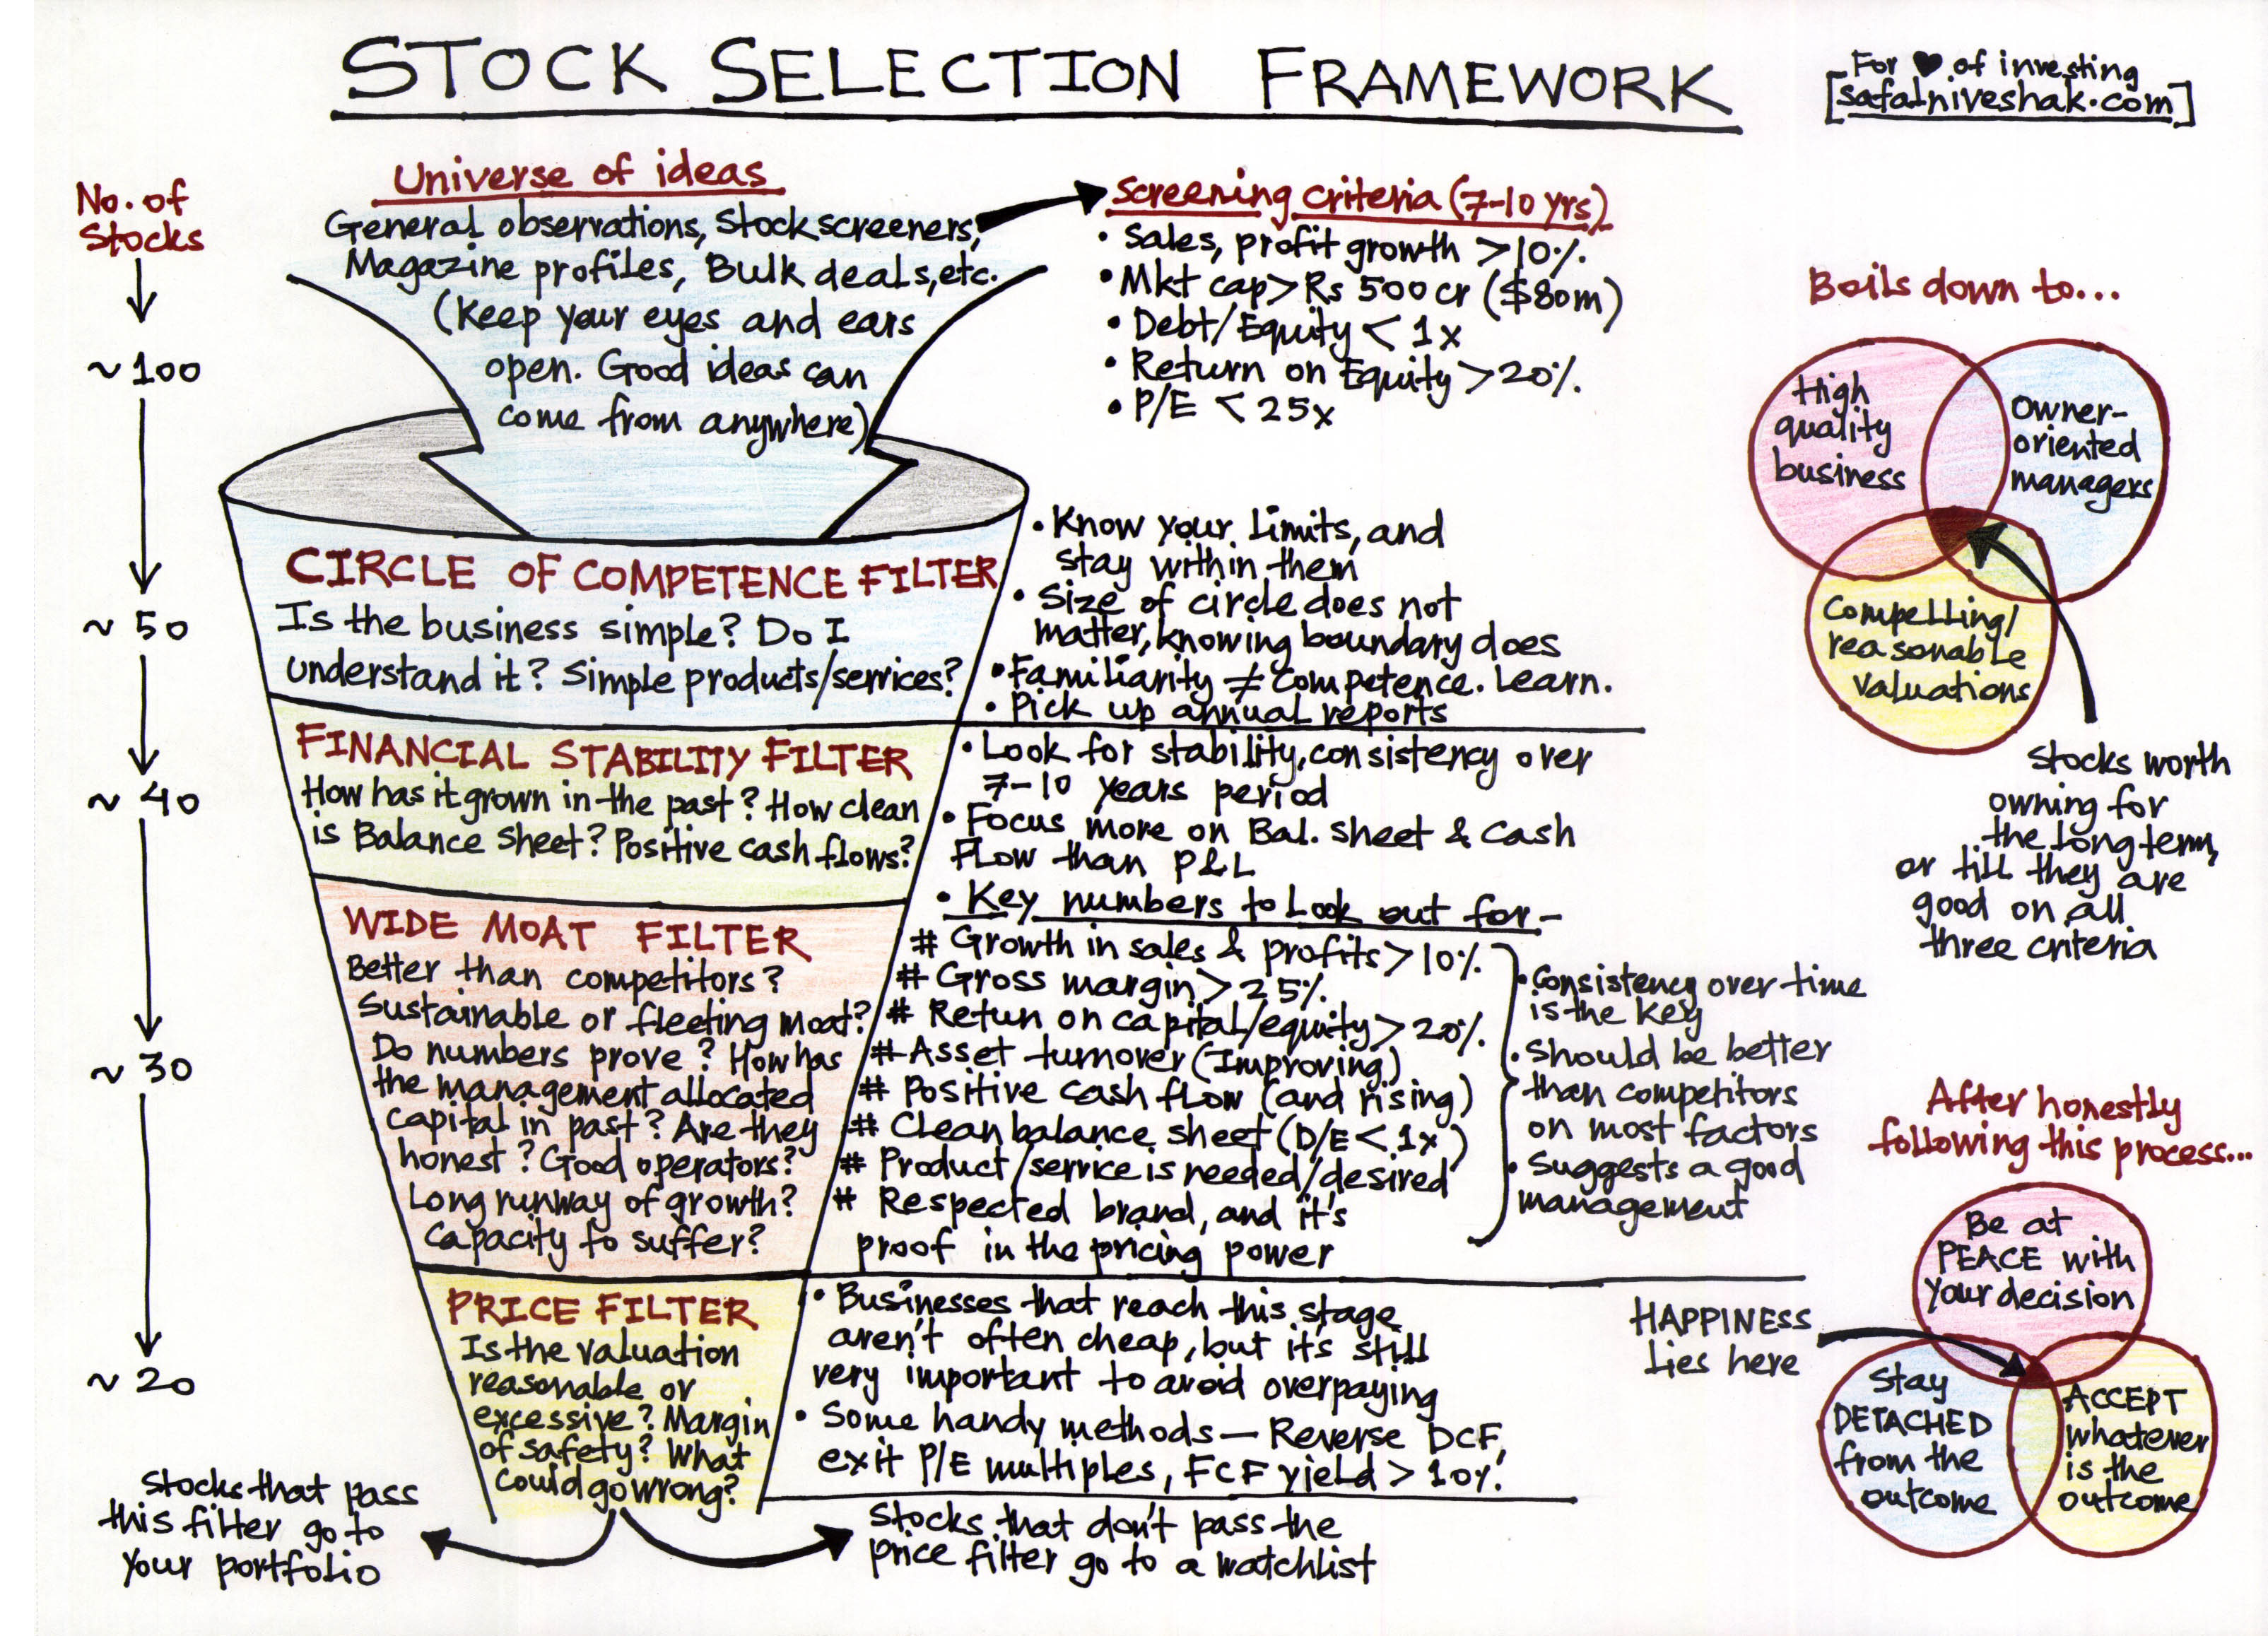 STOCK SELECTION FRAMEWORK
For ♥ of investing
[safalniveshak.com]
No. of
Stocks
~100
~50
~40
~30
~20
Universe of ideas
General observations, Stock screeners,
Magazine profiles, Bulk deals, etc.
(Keep your eyes and ears
open. Good ideas can
come from anywhere)
Screening criteria (7-10 yrs)
• Sales, profit growth >10%
• Mkt cap > Rs 500 cr ($80m)
• Debt/Equity < 1x
• Return on Equity >20%
• P/E < 25x
CIRCLE OF COMPETENCE FILTER
Is the business simple? Do I
understand it? Simple products/services?
• Know your limits, and
stay within them
• Size of circle does not
matter, knowing boundary does
• Familiarity ≠ Competence. Learn.
• Pick up annual reports
FINANCIAL STABILITY FILTER
How has it grown in the past? How clean
is Balance Sheet? Positive cash flows?
• Look for stability, consistency over
7-10 years period
• Focus more on Bal. sheet & Cash
Flow than P&L
• Key numbers to look out for-
# Growth in sales & profits >10%
# Gross margin > 25%
# Retun on capital/equity > 20%
# Asset turnover (Improving)
# Positive cash flow (and rising)
# Clean balance sheet (D/E < 1x)
# Product/service is needed/desired
# Respected brand, and it's
proof in the pricing power
• Consistency over time
is the key
• Should be better
than competitors
on most factors
• Suggests a good
management
WIDE MOAT FILTER
Better than competitors?
Sustainable or fleeting moat?
Do numbers prove? How has
the management allocated
capital in past? Are they
honest? Good operators?
Long runway of growth?
Capacity to suffer?
PRICE FILTER
Is the valuation
reasonable or
excessive? Margin
of safety? What
could go wrong?
• Businesses that reach this stage
aren't often cheap, but it's still
very important to avoid overpaying
• Some handy methods — Reverse DCF,
exit P/E multiples, FCF yield > 10%.
Stocks that pass
this filter go to
your portfolio
Stocks that don't pass the
price filter go to a watchlist
Boils down to...
High
quality
business
Owner-
oriented
managers
Compelling/
reasonable
valuations
Stocks worth
owning for
the long term,
or till they are
good on all
three criteria
After honestly
following this process...
Be at
PEACE with
your decision
HAPPINESS
lies here
Stay
DETACHED
from the
outcome
ACCEPT
whatever
is the
outcome